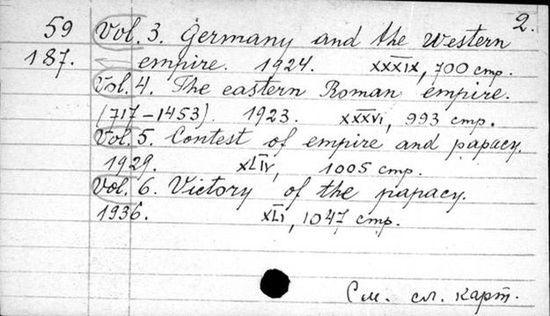 2.
59 Vol. 3. Germany and the Western
187. empire. 1924. XXXIX, 700 стр.
Vol. 4. The eastern Roman empire.
(717-1453). 1923. XXXVI, 993 стр.
Vol. 5. Contest of empire and papacy.
1929. XLIV, 1005 стр.
Vol. 6. Victory of the papacy.
1936. XLI, 1047 стр.
См. сл. карт.